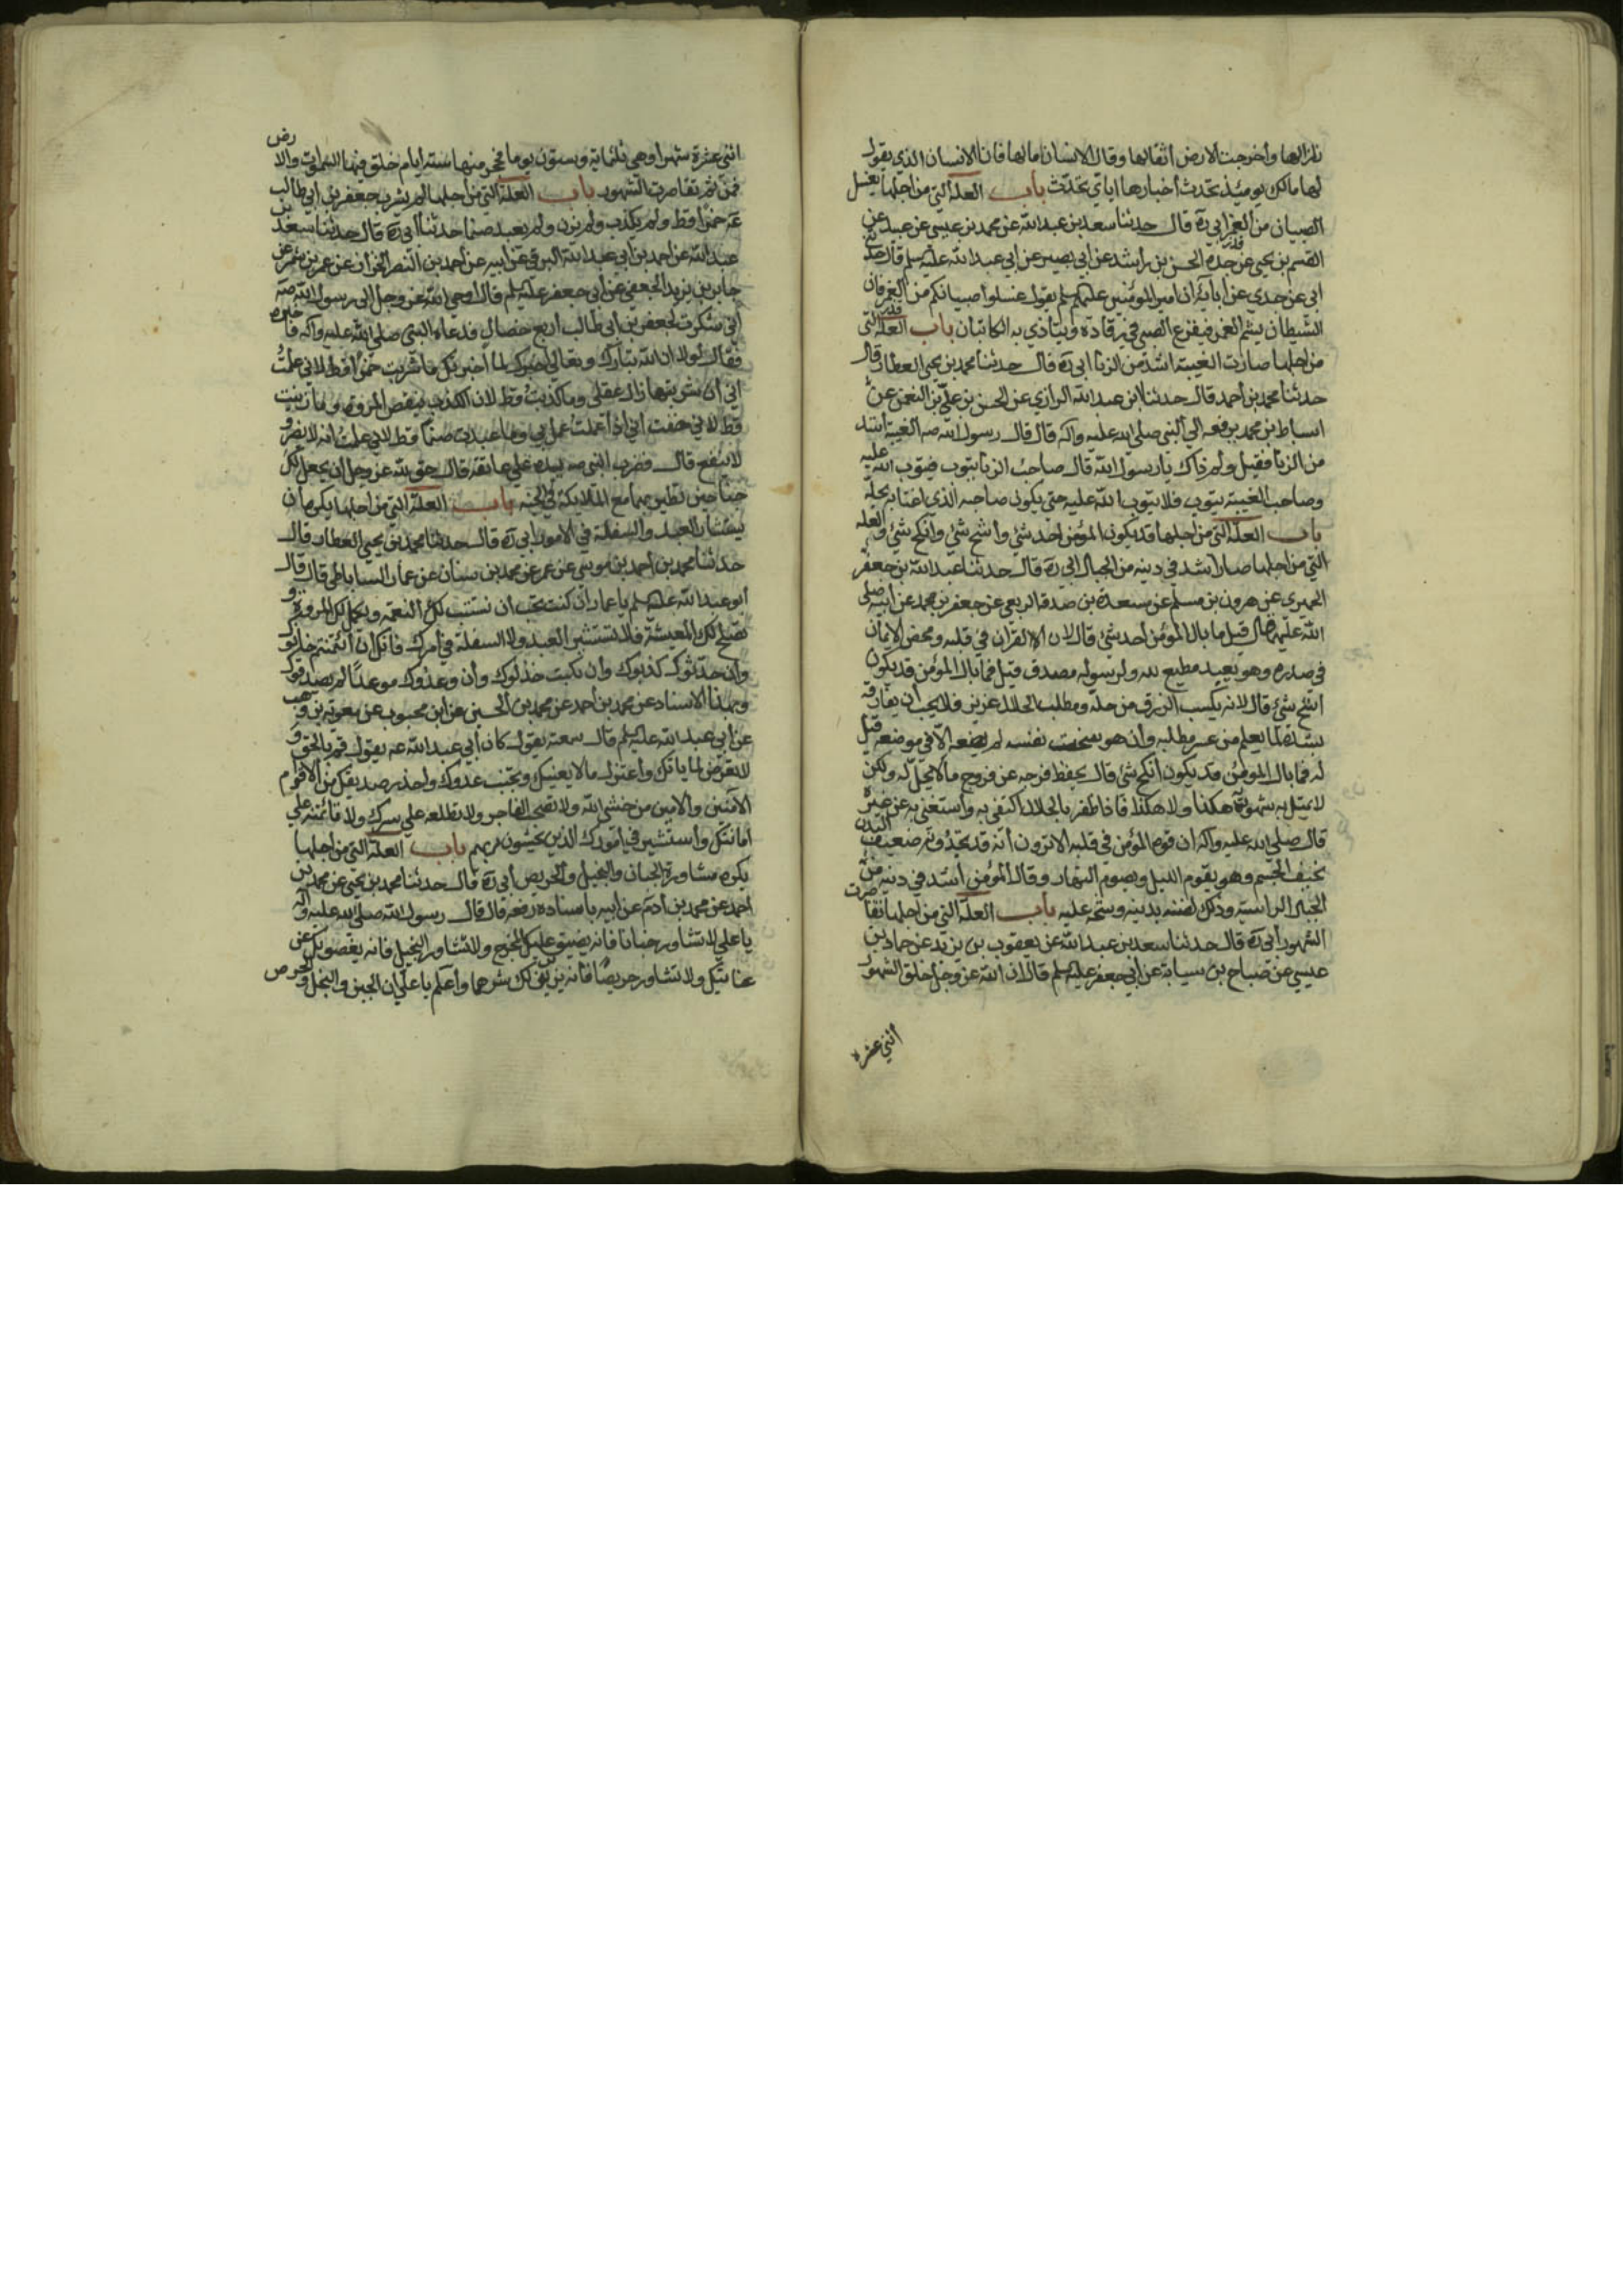 زلزالها وأخرجت الارض أثقالها وقال الانسان مالها فانا الانسان الذي يقول
لها مالك يومئذ تحدث أخبارها اياي تحدث باب العلة التي من اجلها يغسل
الصبيان من الغمر ابي ره قال حدثنا سعد بن عبد الله عن محمد بن عيسى عن عبيد عن
القسم بن يحيى عن جده الحسن بن راشد عن ابي بصير عن ابي عبد الله عليه سلم قال حدثني
ابي عن جدي عن آبائه ان امير المؤمنين عليهم سلم يقول غسلوا صبيانكم من الغمر فان
الشيطان يشم الغمر فيفزع الصبي في رقاده ويتاذي به الكاتبان باب العلة التي
من اجلها صارت الغيبة اشد من الزنا ابي ره قال حدثنا محمد بن يحيى العطار قال
حدثنا محمد بن أحمد قال حدثنا ابن عبد الله الرازي عن الحسن بن علي بن النعمن عن
اسباط بن محمد يرفعه الى النبي صلى الله عليه واله قال قال رسول الله صه الغيبة اشد
من الزنا فقيل ولم ذاك يا رسول الله قال صاحب الزنا يتوب فيتوب الله عليه
وصاحب الغيبة يتوب فلا يتوب الله عليه حتى يكون صاحبه الذي اغتابه يحله
باب العلة التي من اجلها قد يكون المؤمن احد شئ وأشح شئ وأنكح شئ والعله
التي من اجلها صار اشد في دينه من الجبال ابي ره قال حدثنا عبد الله بن جعفر
الحميري عن هرون بن مسلم عن مسعدة بن صدقة الربعي عن جعفر بن محمد عن ابيه صلى
الله عليهما قال قيل ما بال المؤمن أحد شئ قال لان القران في قلبه ومحض الايمان
في صدره وهو يعبد مطيع لله ولرسوله مصدق قيل فما بال المؤمن قد يكون
اشح شئ قال لانه يكسب الرزق من حله ومطلب الحلال عزيز فلا يحب أن يفارقه
لشدة لما يعلم من عسر مطلبه وان هو سخت نفسه لم يضعه الا في موضعه قيل
له فما بال المؤمن قد يكون أنكح شئ قال يحفظ فرجه عن فروج ما لا يحل له ولكن
لا تميل به شهوته هكذا ولا هكذا فاذا ظفر بالحلال اكتفى به واستغنى به عن غيره
قال صلى الله عليه وآله ان قوة المؤمن في قلبه الا ترون أنه قد تجدونه ضعيف البدن
نحيف الجسم وهو يقوم الليل ويصوم النهار وقال المؤمن أشد في دينه من
الجبال الراسية وذلك لضنه بدينه وشحه عليه باب العلة التي من اجلها تقاصرت
الشهور أبي ره قال حدثنا سعد بن عبد الله عن يعقوب بن يزيد عن حماد بن
عيسى عن صباح بن سيابة عن ابي جعفر عليه سلم قال ان الله عز وجل خلق الشهور
اثني عشره
اثني عشرة شهرا وهي ثلثماية وستون يوما فحجز منها ستة أيام خلق فيها السموات والارض
فمن ثم تقاصرت الشهور باب العلة التي من اجلها لم يشرب جعفر بن ابي طالب
عه خمرا قط ولم يكذب ولم يزن ولم يعبد صنما حدثنا أبي ره قال حدثنا سعد بن
عبد الله عن احمد بن ابي عبد الله البرقي عن أبيه عن احمد بن النضر الخزان عن عمر بن شمر عن
جابر بن يزيد الجعفي عن أبي جعفر عليه سلم قال اوحى الله عز وجل الى رسول الله صه
أني شكرت لجعفر بن أبي طالب اربع خصال فدعاه النبي صلى الله عليه وآله فاخبره
فقال لولا ان الله تبارك وتعالى اخبرك لما أخبرتك ما شربت خمرا قط لاني علمت
اني ان شربتها زال عقلي وما كذبت قط لان الكذب ينقص المروة وما زنيت
قط لاني خفت اني اذا عملت عمل بي وما عبدت صنما قط لاني علمت انه لا يضر و
لا ينفع قال فضرب النبي صه بيده على عاتقه قال حق لله عز وجل أن يجعل لك
جناحين تطير بهما مع الملايكة في الجنه باب العلة التي من اجلها يكره أن
يستشار العبد والسفلة في الامور ابي ره قال حدثنا محمد بن يحيى العطار قال
حدثنا محمد بن أحمد بن موسى عن عمر عن محمد بن سنان عن عمار الساباطي قال قال
أبو عبد الله عليه سلم يا عمار ان كنت تحب ان تستتب لك النعمة وتكمل لك المروة و
تصلح لك المعيشة فلا تستشر العبد ولا السفلة في امرك فانك ان ائتمنتهم خانوك
وان حدثوك كذبوك وان نكبت خذلوك وأن وعدوك موعدا لم يصدقوك
وبهذا الاسناد عن محمد بن أحمد عن محمد بن الحسين عن ابن محبوب عن معوية بن وهب
عن ابي عبد الله عليه سلم قال سمعته يقول كان أبي عبد الله عه يقول قم بالحق و
لا تعرض لما ياتك وأعتزل ما لا يعنيك وتجنب عدوك واحذر صديقك من الاقوام
الا الامين والامين من خشي الله ولا تصحب الفاجر ولا تطلعه على سرك ولا تأتمنه على
امانتك وأستشر في أمورك الذين يخشون ربهم باب العلة التي من اجلها
يكره مشاورة الجبان والبخيل والحريص أبي ره قال حدثنا محمد بن يحيى عن محمد بن
احمد عن محمد بن ادم عن ابيه باسناده رفعه قال قال رسول الله صلى الله عليه وآله
يا علي لا تشاور جبانا فانه يضيق عليك المخرج ولا تشاور البخيل فانه يقصر بك عن
غايتك ولا تشاور حريصا فانه يزين لك شرهما وأعلم يا علي ان الجبن والبخل والحرص